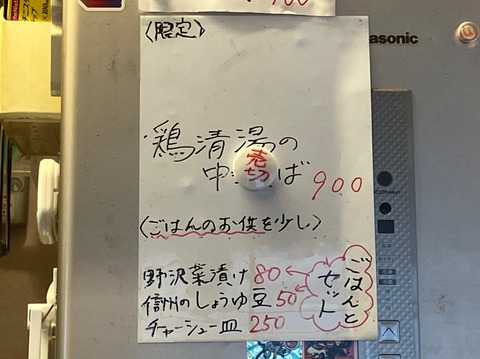 900
〈限定〉
Panasonic
鶏清湯の
中 ば 900
売切
〈ごはんのお供を少し〉
野沢菜漬け 80
信州のしょうゆ豆 50
チャーシュー皿 250
ごはんと
セット
ECONAVI